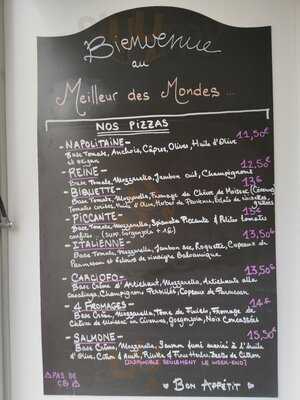 Bienvenue
au
Meilleur des Mondes...
NOS PIZZAS
- NAPOLITAINE - 11,50€
Base Tomate, Anchois, Câpres, Olives, Huile d'Olive
et Origan
- REINE - 12,50€
Base Tomate, Mozzarella, Jambon cuit, Champignons
- BIQUETTE - 13€
Base Tomate, Mozzarella, Fromage de Chèvre de
Tomates cerises, Huile d'Olive, Herbes de Provence, de
graines
- PICCANTE - 13€
Base Tomate, Mozzarella, Spianata Piccante & Petites tomates
confites (supp. Gorgonzola + 1€)
- ITALIENNE - 13,50€
Base Tomate, Mozzarella, Jambon sec, Roquette, Copeaux de
Parmesan et Velours de vinaigre Balsamique
- CARCIOFO - 13,50€
Base Crème d'Artichaut, Mozzarella, Artichauts alla
Champignons, Persillés, Copeaux de Parmesan
- 4 FROMAGES - 14€
Base Crème, Mozzarella, Tome de
Chèvre de en Cévennes, Gorgonzola, Noix Concassées
- SALMONE - 15,50€
Base Crème, Mozzarella, Saumon fumé mariné à l'huile
d'Olive, Citron & Aneth, Zeste de Citron
(DISPONIBLE SEULEMENT LE WEEK-END)
PAS DE
CB
BON APPÉTIT